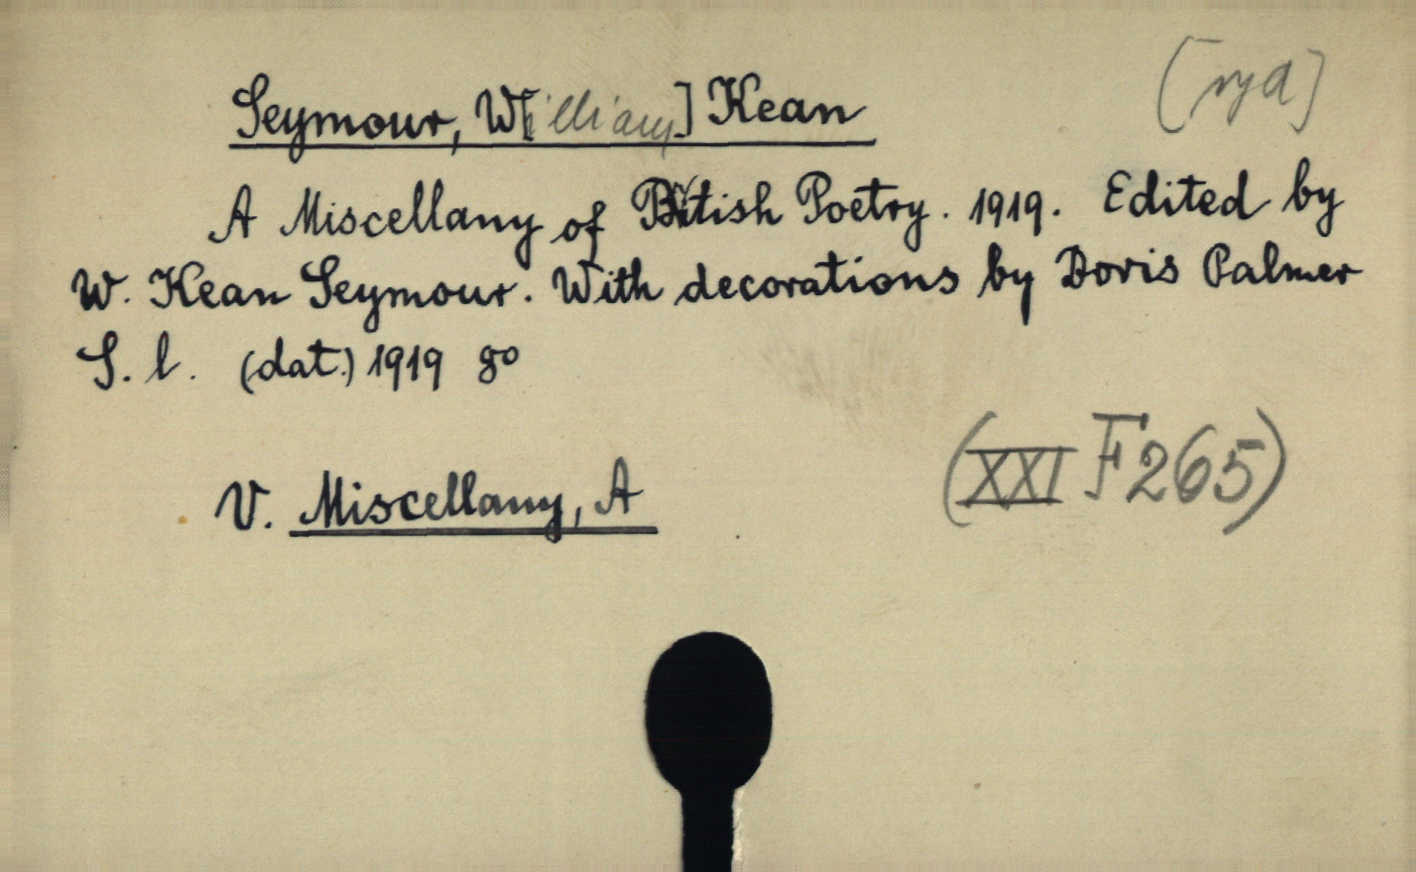 Seymour, W[illiam] Kean
[nya]
A Miscellany of British Poetry. 1919. Edited by
W. Kean Seymour. With decorations by Doris Palmer
S. l. (dat.) 1919 8o
(XXI F 265)
V. Miscellany, A